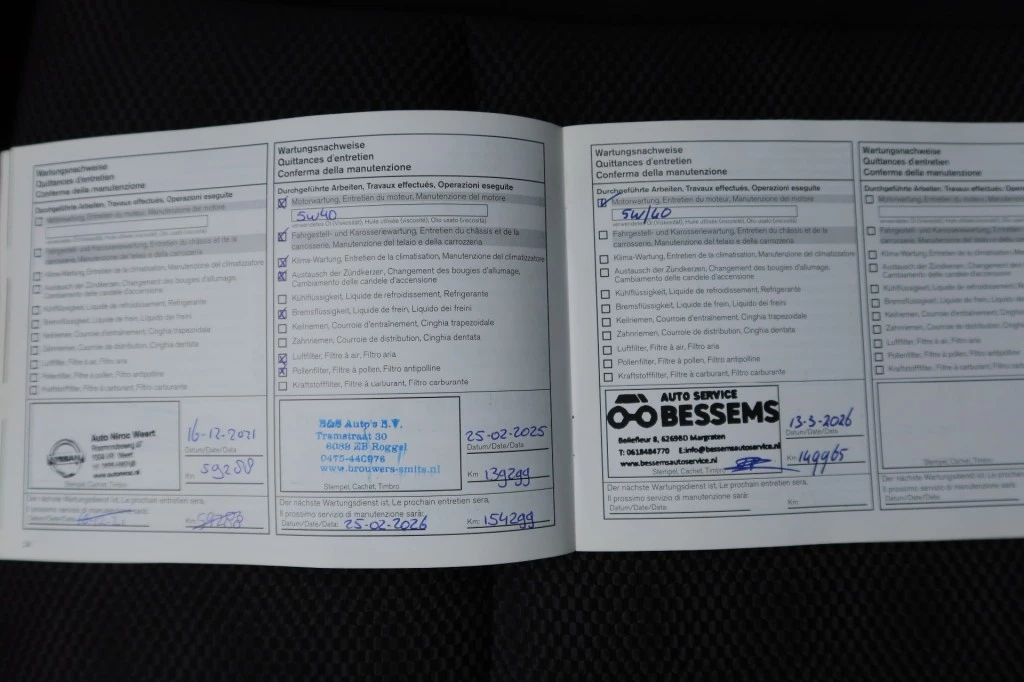 Wartungsnachweise
Quittances d'entretien
Conferma della manutenzione
Durchgeführte Arbeiten, Travaux effectués, Operazioni eseguite
Motorwartung, Entretien du moteur, Manutenzione del motore
Fahrgestell- und Karosseriewartung, Entretien du châssis et de la
carrosserie, Manutenzione del telaio e della carrozzeria
Klima-Wartung, Entretien de la climatisation, Manutenzione del climatizzatore
Austausch der Zündkerzen, Changement des bougies d'allumage,
Cambiamento delle candele d'accensione
Kühlflüssigkeit, Liquide de refroidissement, Refrigerante
Bremsflüssigkeit, Liquide de frein, Liquido dei freini
Keilriemen, Courroie d'entraînement, Cinghia trapezoidale
Zahnriemen, Courroie de distribution, Cinghia dentata
Luftfilter, Filtre à air, Filtro aria
Pollenfilter, Filtre à pollen, Filtro antipolline
Kraftstofffilter, Filtre à carburant, Filtro carburante
Auto Niroc Weert
NISSAN
Stempel, Cachet, Timbro
16-12-2021
Datum/Date/Data
Km 59288
Der nächste Wartungsdienst ist, Le prochain entretien sera,
Il prossimo servizio di manutenzione sarà:
Datum/Date/Data:
Km:
Wartungsnachweise
Quittances d'entretien
Conferma della manutenzione
Durchgeführte Arbeiten, Travaux effectués, Operazioni eseguite
Motorwartung, Entretien du moteur, Manutenzione del motore
5W40
Verwendetes Öl (Viskosität), Huile utilisée (viscosité), Olio usato (viscosità)
Fahrgestell- und Karosseriewartung, Entretien du châssis et de la
carrosserie, Manutenzione del telaio e della carrozzeria
Klima-Wartung, Entretien de la climatisation, Manutenzione del climatizzatore
Austausch der Zündkerzen, Changement des bougies d'allumage,
Cambiamento delle candele d'accensione
Kühlflüssigkeit, Liquide de refroidissement, Refrigerante
Bremsflüssigkeit, Liquide de frein, Liquido dei freini
Keilriemen, Courroie d'entraînement, Cinghia trapezoidale
Zahnriemen, Courroie de distribution, Cinghia dentata
Luftfilter, Filtre à air, Filtro aria
Pollenfilter, Filtre à pollen, Filtro antipolline
Kraftstofffilter, Filtre à carburant, Filtro carburante
B&S Auto's B.V.
Tramstraat 30
6088 EB Roggel
0475-440976
www.brouwers-smits.nl
Stempel, Cachet, Timbro
25-02-2025
Datum/Date/Data
Km 139299
Der nächste Wartungsdienst ist, Le prochain entretien sera,
Il prossimo servizio di manutenzione sarà:
Datum/Date/Data: 25-02-2026
Km: 154299
Wartungsnachweise
Quittances d'entretien
Conferma della manutenzione
Durchgeführte Arbeiten, Travaux effectués, Operazioni eseguite
Motorwartung, Entretien du moteur, Manutenzione del motore
5W/40
Verwendetes Öl (Viskosität), Huile utilisée (viscosité), Olio usato (viscosità)
Fahrgestell- und Karosseriewartung, Entretien du châssis et de la
carrosserie, Manutenzione del telaio e della carrozzeria
Klima-Wartung, Entretien de la climatisation, Manutenzione del climatizzatore
Austausch der Zündkerzen, Changement des bougies d'allumage,
Cambiamento delle candele d'accensione
Kühlflüssigkeit, Liquide de refroidissement, Refrigerante
Bremsflüssigkeit, Liquide de frein, Liquido dei freini
Keilriemen, Courroie d'entraînement, Cinghia trapezoidale
Zahnriemen, Courroie de distribution, Cinghia dentata
Luftfilter, Filtre à air, Filtro aria
Pollenfilter, Filtre à pollen, Filtro antipolline
Kraftstofffilter, Filtre à carburant, Filtro carburante
AUTO SERVICE
BESSEMS
Bellefleur 8, 6269BD Margraten
T: 0618484770 E: info@bessemsautoservice.nl
www.bessemsautoservice.nl
Stempel, Cachet, Timbro
13-3-2026
Datum/Date/Data
Km 149965
Der nächste Wartungsdienst ist, Le prochain entretien sera,
Il prossimo servizio di manutenzione sarà:
Datum/Date/Data:
Km:
Wartungsnachweise
Quittances d'entretien
Conferma della manutenzione
Durchgeführte Arbeiten, Travaux
Motorwartung, Entretien du moteur
Fahrgestell- und Karosseriewartung
carrosserie, Manutenzione del telaio
Klima-Wartung, Entretien de la
Austausch der Zündkerzen
Cambiamento delle candele
Kühlflüssigkeit, Liquide de
Bremsflüssigkeit, Liquide de
Keilriemen, Courroie d'entraînement
Zahnriemen, Courroie de distribution
Luftfilter, Filtre à air, Filtro
Pollenfilter, Filtre à pollen, Filtro
Kraftstofffilter, Filtre à carburant
Stempel, Cachet, Timbro
Der nächste Wartungsdienst ist, Le
Il prossimo servizio di manutenzione
Datum/Date/Data: